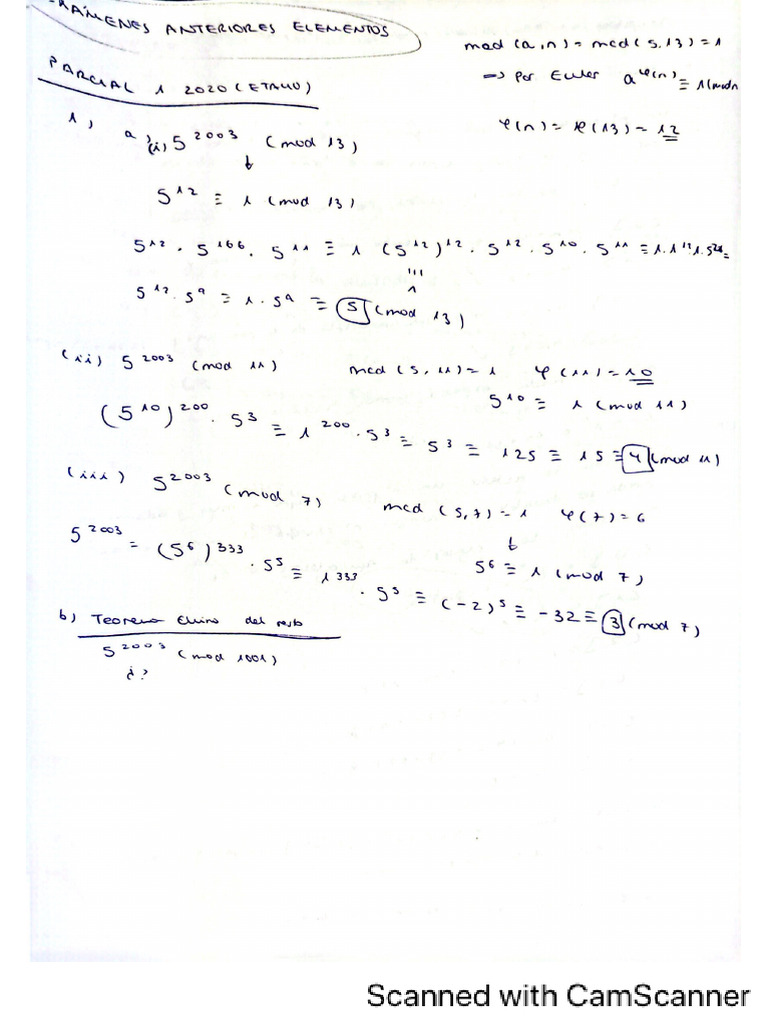 EXÁMENES ANTERIORES ELEMENTOS
PARCIAL 1 2020 (ETAHU)
mcd (a,n) = mcd (5,13) = 1
→ Por Euler a^φ(n) ≡ 1 (mod n
φ(n) = φ(13) = 12
1) a) (i) 5^2003 (mod 13)
↓
5^12 ≡ 1 (mod 13)
5^12 · 5^166 · 5^11 ≡ 1 (5^12)^12 · 5^12 · 5^10 · 5^11 ≡ 1 · 1^12 · 1 · 5^21 =
5^12 · 5^9 ≡ 1 · 5^9 ≡ 5 (mod 13)
(ii) 5^2003 (mod 11) mcd (5, 11) = 1 φ(11) = 10
5^10 ≡ 1 (mod 11)
(5^10)^200 · 5^3 ≡ 1^200 · 5^3 ≡ 5^3 ≡ 125 ≡ 15 ≡ 4 (mod 11)
(iii) 5^2003 (mod 7) mcd (5,7) = 1 φ(7) = 6
↓
5^6 ≡ 1 (mod 7)
5^2003 = (5^6)^333 · 5^5 ≡ 1^333 · 5^5 ≡ (-2)^5 ≡ -32 ≡ 3 (mod 7)
b) Teorema Chino del resto
5^2003 (mod 1001)
¿?
Scanned with CamScanner